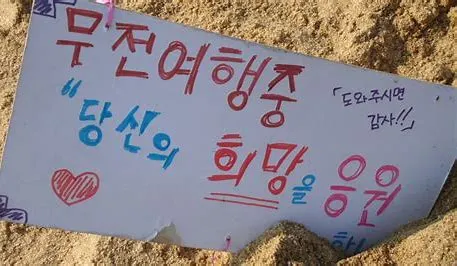 무전여행중
「도와주시면
감사!!」
"당신의
희망을 응원